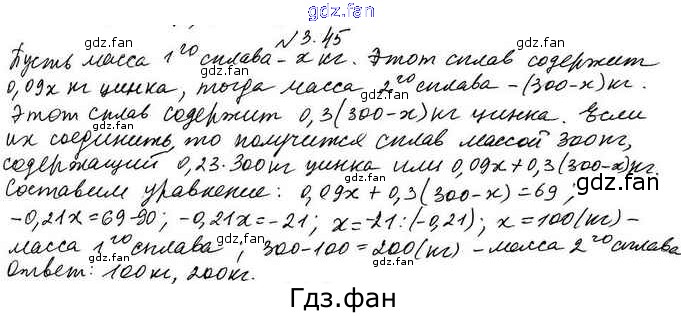 № 3.45
Пусть масса 1го сплава - x кг. Этот сплав содержит
0,09x кг цинка, тогда масса 2го сплава - (300-x) кг.
Этот сплав содержит 0,3(300-x) кг цинка. Если
их соединить, то получится сплав массой 300 кг,
содержащий 0,23·300 кг цинка или 0,09x+0,3(300-x) кг.
Составим уравнение: 0,09x+0,3(300-x)=69;
-0,21x=69-90; -0,21x=-21; x=-21:(-0,21); x=100(кг)-
масса 1го сплава; 300-100=200(кг) - масса 2го сплава
Ответ: 100кг, 200кг.
gdz.fan gdz.fan gdz.fan
gdz.fan gdz.fan gdz.fan
gdz.fan gdz.fan gdz.fan
gdz.fan gdz.fan gdz.fan
gdz.fan gdz.fan gdz.fan
Гдз.фан